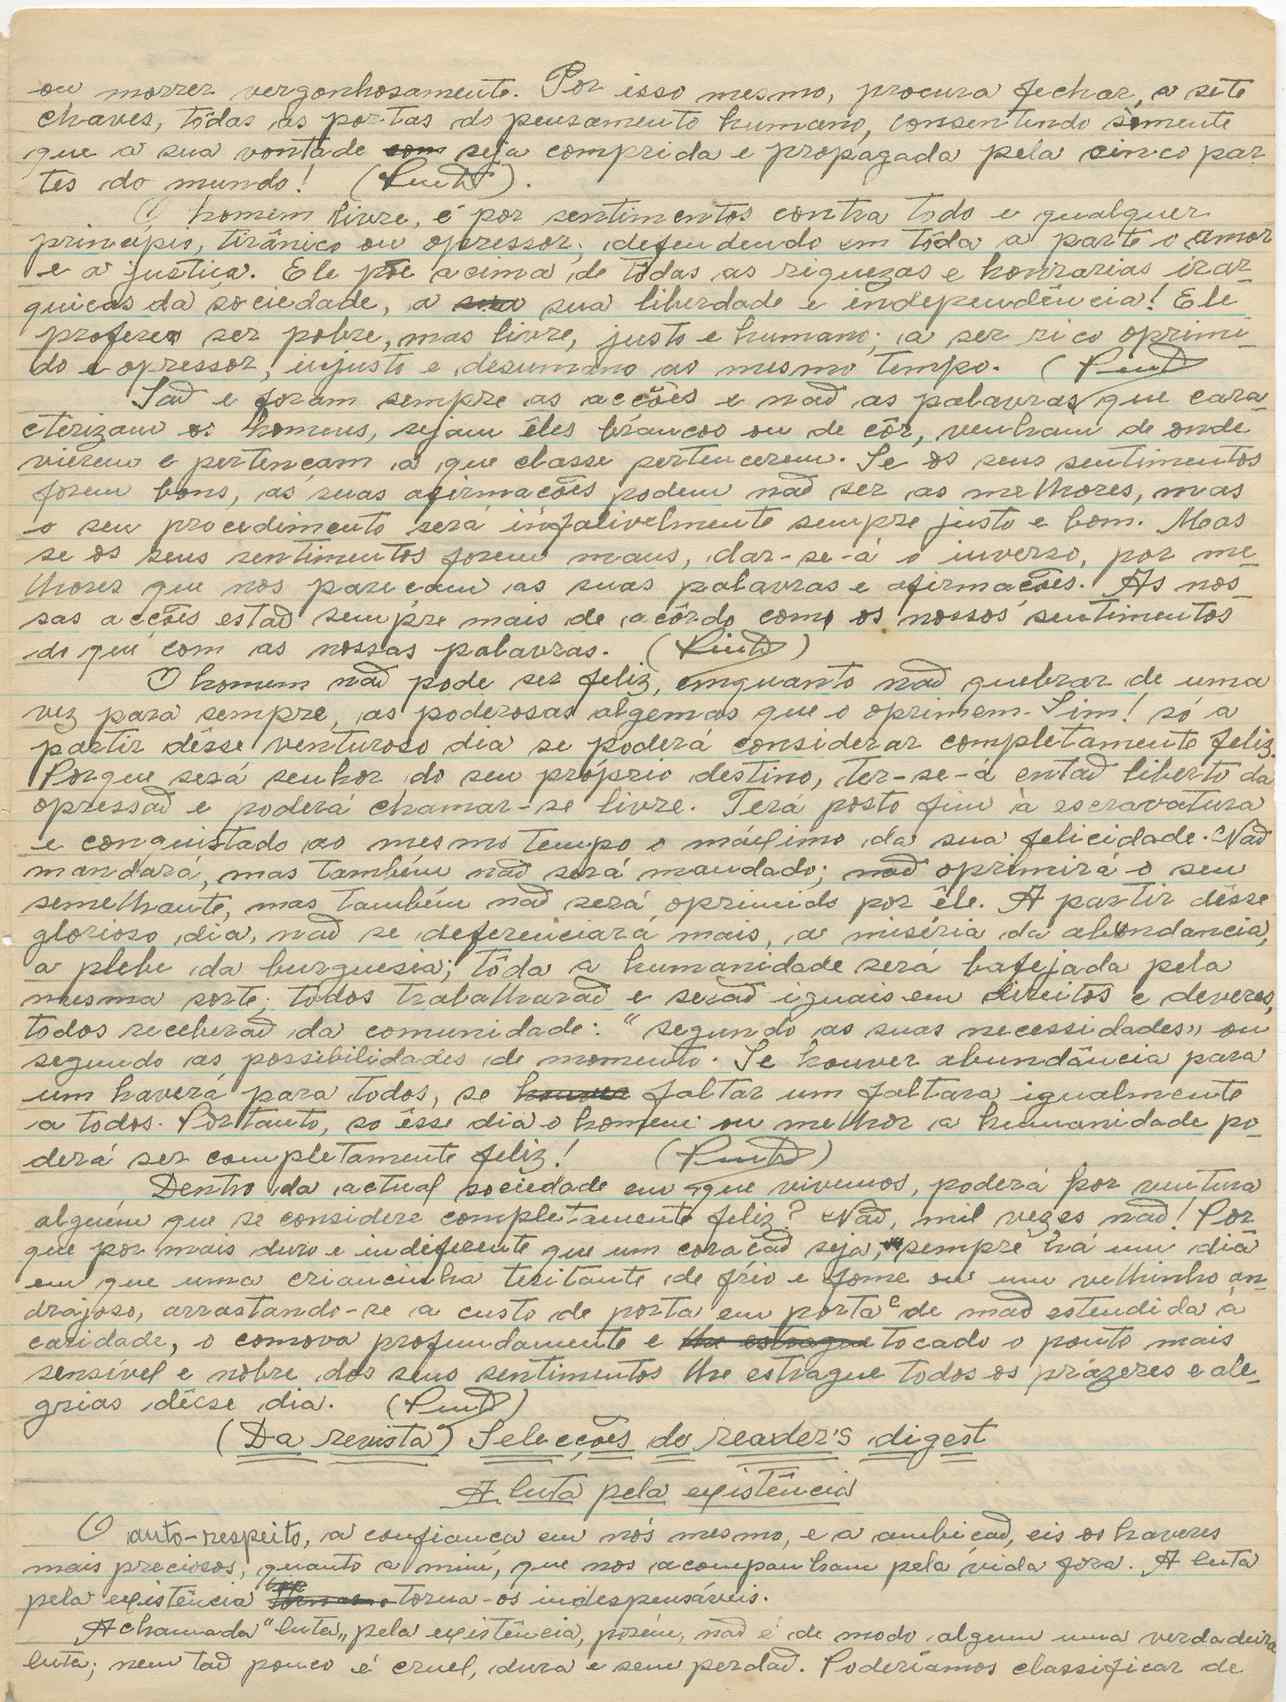 ou morrer vergonhosamente. Por isso mesmo, procura fechar, a sete
chaves, tôdas as portas do pensamento humano, consentindo sòmente
que a sua vontade com seja comprida e propagada pela cinco par-
tes do mundo! (Pinto).
O homem livre, é por sentimentos contra todo e qualquer
princípio, tirânico ou opressor; defendendo em tôda a parte o amor
e a justiça. Ele põe acima de tôdas as riquezas e honrarias irar-
quicas da sociedade, a sua sua liberdade e independência! Ele
prefere ser pobre, mas livre, justo e humano; a ser rico oprimi-
do e opressor, injusto e desumano ao mesmo tempo. (Pinto
Saõ e foram sempre as acções e naõ as palavras que cara-
cterizam os homens, sejam êles brancos ou de côr, venham de onde
vierem e pertençam a que classe pertencerem. Se os seus sentimentos
forem bons, as suas afirmações podem naõ ser as melhores, mas
o seu procedimento será infalivelmente sempre justo e bom. Mas
se os seus sentimentos forem maus, dar-se-á o inverso, por me-
lhores que nos pareçam as suas palavras e afirmações. As nos-
sas acções estaõ sempre mais de acôrdo come os nossos sentimentos
do que com as nossas palavras. (Pinto)
O homem naõ pode ser feliz, enquanto naõ quebrar de uma
vez para sempre, as poderosas algemas que o oprimem. Sim! só a
partir dêsse venturoso dia se poderá considerar completamente feliz.
Porque será senhor do seu próprio destino, ter-se-á entaõ liberto da
opressaõ e poderá chamar-se livre. Terá posto fim à escravatura
e conquistado ao mesmo tempo o máximo da sua felicidade. Naõ
mandará, mas também naõ será mandado; naõ oprimirá o seu
semelhante, mas também naõ será oprimido por êle. A partir dêsse
glorioso dia, naõ se deferenciará mais, a miséria da abundancia,
a plebe da burguesia; tôda a humanidade será bafejada pela
mesma sorte; todos trabalharaõ e seraõ iguais em direitos e deveres,
todos receberaõ da comunidade: "segundo as suas necessidades" ou
segundo as possibilidades de momento. Se houver abundância para
um haverá para todos, se houver faltar um faltara igualmente
a todos. Portanto, so êsse dia o homem ou melhor a humanidade po-
derá ser completamente feliz! (Pinto)
Dentro da actual sociedade em que vivemos, poderá por ventura
alguém que se considere completamente feliz? Naõ, mil vezes naõ! Por-
que por mais duro e indiferente que um coraçaõ seja, sempre há um dia
em que uma criancinha tiritante de frio e fome ou um velhinho an-
drajoso, arrastando-se a custo de porta em porta e de maõ estendida à
caridade, o comova profundamente e lhe estrague tocado o ponto mais
sensível e nobre dos seus sentimentos lhe estrague todos os prazeres e ale-
grias dêsse dia. (Pinto)
(Da revista) Selecções do reader's digest
A luta pela existência
O auto-respeito, a confiança em nós mesmo, e a ambiçaõ, eis os haveres
mais preciosos, quanto a mim, que nos acompanham pela vida fora. A luta
pela existência torna-os indespensáveis.
A chamada "luta" pela existência, porém, naõ é de modo algum uma verdadeira
luta; nem taõ pouco é cruel, dura e sem perdaõ. Poderíamos classificar de